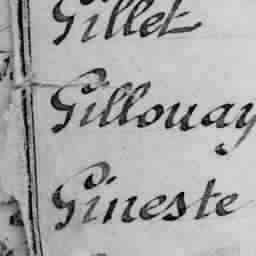 Gillet
Gillouay
Gineste